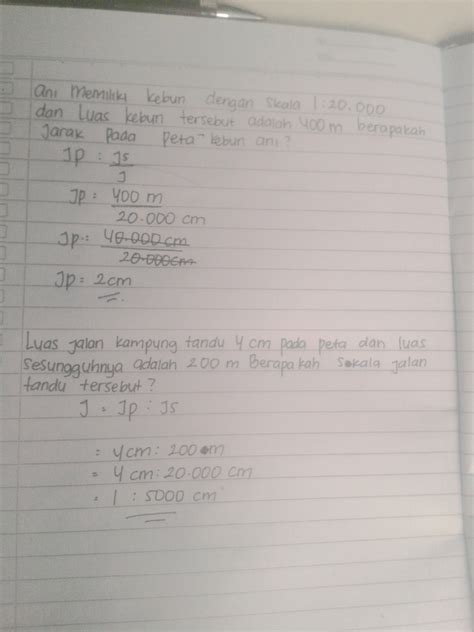 Ani memiliki kebun dengan skala 1:20.000
dan luas kebun tersebut adalah 400 m berapakah
Jarak pada peta kebun ani?
Jp : Js
J
Jp = 400 m
20.000 cm
Jp = 40.000 cm
20.000cm
Jp = 2cm
Luas jalan kampung tandu 4 cm pada peta dan luas
sesungguhnya adalah 200 m Berapakah Skala jalan
tandu tersebut?
J = Jp : Js
= 4cm : 200 m
= 4 cm : 20.000 cm
= 1 : 5000 cm